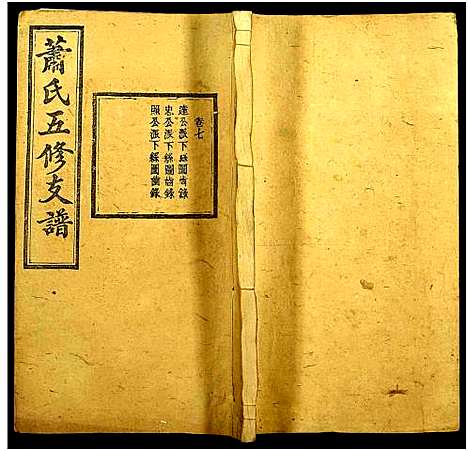 蕭氏五修支譜
卷七
達公派下系圖齒錄
忠公派下系圖齒錄
照公派下系圖齒錄